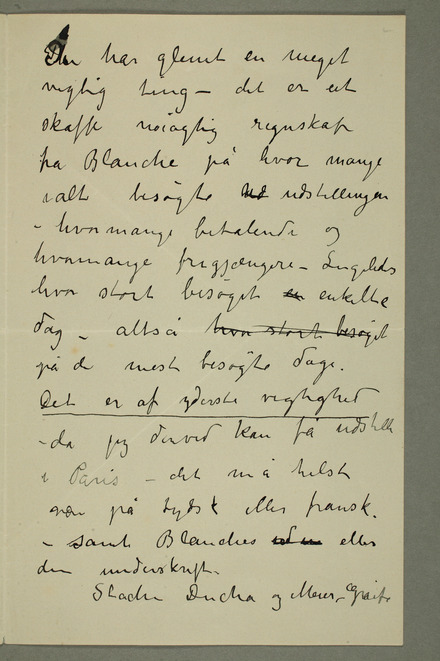 Du har glemt en meget
vigtig ting – det er at
skaffe nöiagtig regnskab
fra Blanche på hvor mange
ialt besögte ud udstillingen
– hvormange betalende og
hvormange frigjængere – Ligeledes
hvor stort besöget en enkelte
dag – altså hvor stort besöget
på de mest besögte dage.
Det er af yderste vigtighed
– da jeg derved kan få udstille
i Paris – det må helst
være på tydsk eller fransk.
– samt Blanches eller
din underskrift.
Stadin Ducha og Meier-Græfe